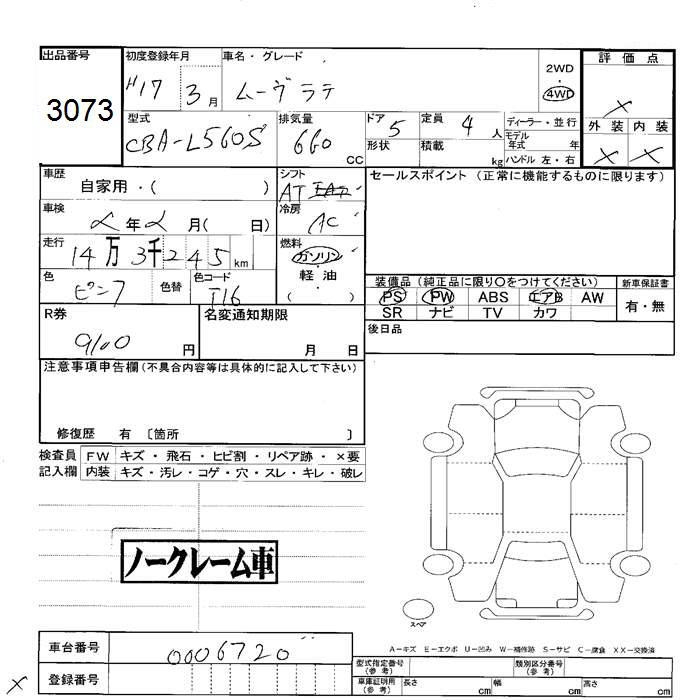 出品番号
3073
初度登録年月
H17 3月
車名・グレード
ムーヴラテ
2WD
・
4WD
評価点
X
外装 内装
X X
型式
CBA-L560S
排気量
660 CC
ドア 5
形状
定員 4 人
積載 kg
ディーラー・並行
モデル年式 年
ハンドル 左・右
車歴
自家用・( )
シフト
AT
セールスポイント (正常に機能するものに限ります)
車検
年 月( 日)
冷房
AC
走行
14万3千245km
燃料
ガソリン
・
軽油
( )
色
ピンク
色替
色コード
T16
装備品 (純正品に限り〇をつけてください)
PS PW ABS エアB AW
SR ナビ TV カワ
新車保証書
有・無
R券
9100 円
名変通知期限
月 日
後日品
注意事項申告欄(不具合内容等は具体的に記入して下さい)
修復歴 有 〔箇所 〕
検査員記入欄
FW キズ・飛石・ヒビ割・リペア跡・×要
内装 キズ・汚レ・コゲ・穴・スレ・キレ・破レ
ノークレーム車
スペア
A−キズ E−エクボ U−凹み W−補修跡 S−サビ C−腐食 XX−交換済
車台番号
0006720
登録番号
X
型式指定番号(参考)
類別区分番号(参考)
車庫証明用(参考)
長さ cm
幅 cm
高さ cm